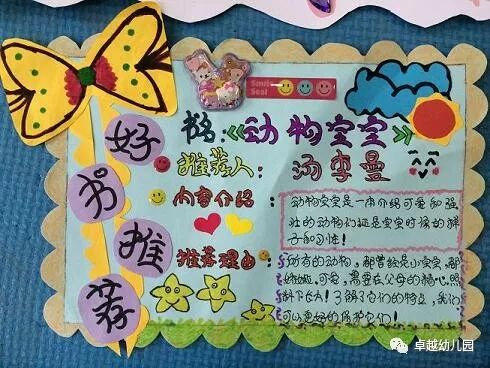 好书推荐
Smile
Seal
书名：《动物宝宝》
推荐人：汤李曼
内容介绍：
动物宝宝是一本介绍可爱和强
壮的动物们还是宝宝时候的样
子和习性！
推荐理由：
所有的动物，都曾经是小宝宝，都
很可爱，需要在父母的精心照
料下长大！了解了它们的特点，我们
可以更好的保护它们！
卓越幼儿园